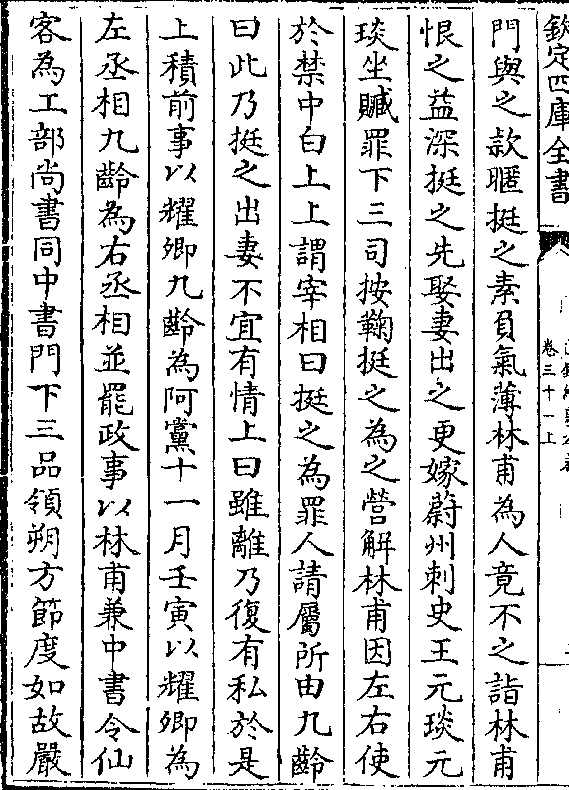 欽定四庫全書
卷三十一上
門與之款暱挺之素負氣薄林甫為人竟不之詣林甫
恨之益深挺之先娶妻出之更嫁蔚州刺史王元琰元
琰坐贓罪下三司按鞫挺之為之營解林甫因左右使
於禁中白上上謂宰相曰挺之為罪人請屬所由九齡
曰此乃挺之出妻不宜有情上曰雖離乃復有私於是
上積前事以耀卿九齡為阿黨十一月壬寅以耀卿為
左丞相九齡為右丞相並罷政事以林甫兼中書令仙
客為工部尚書同中書門下三品領朔方節度如故嚴